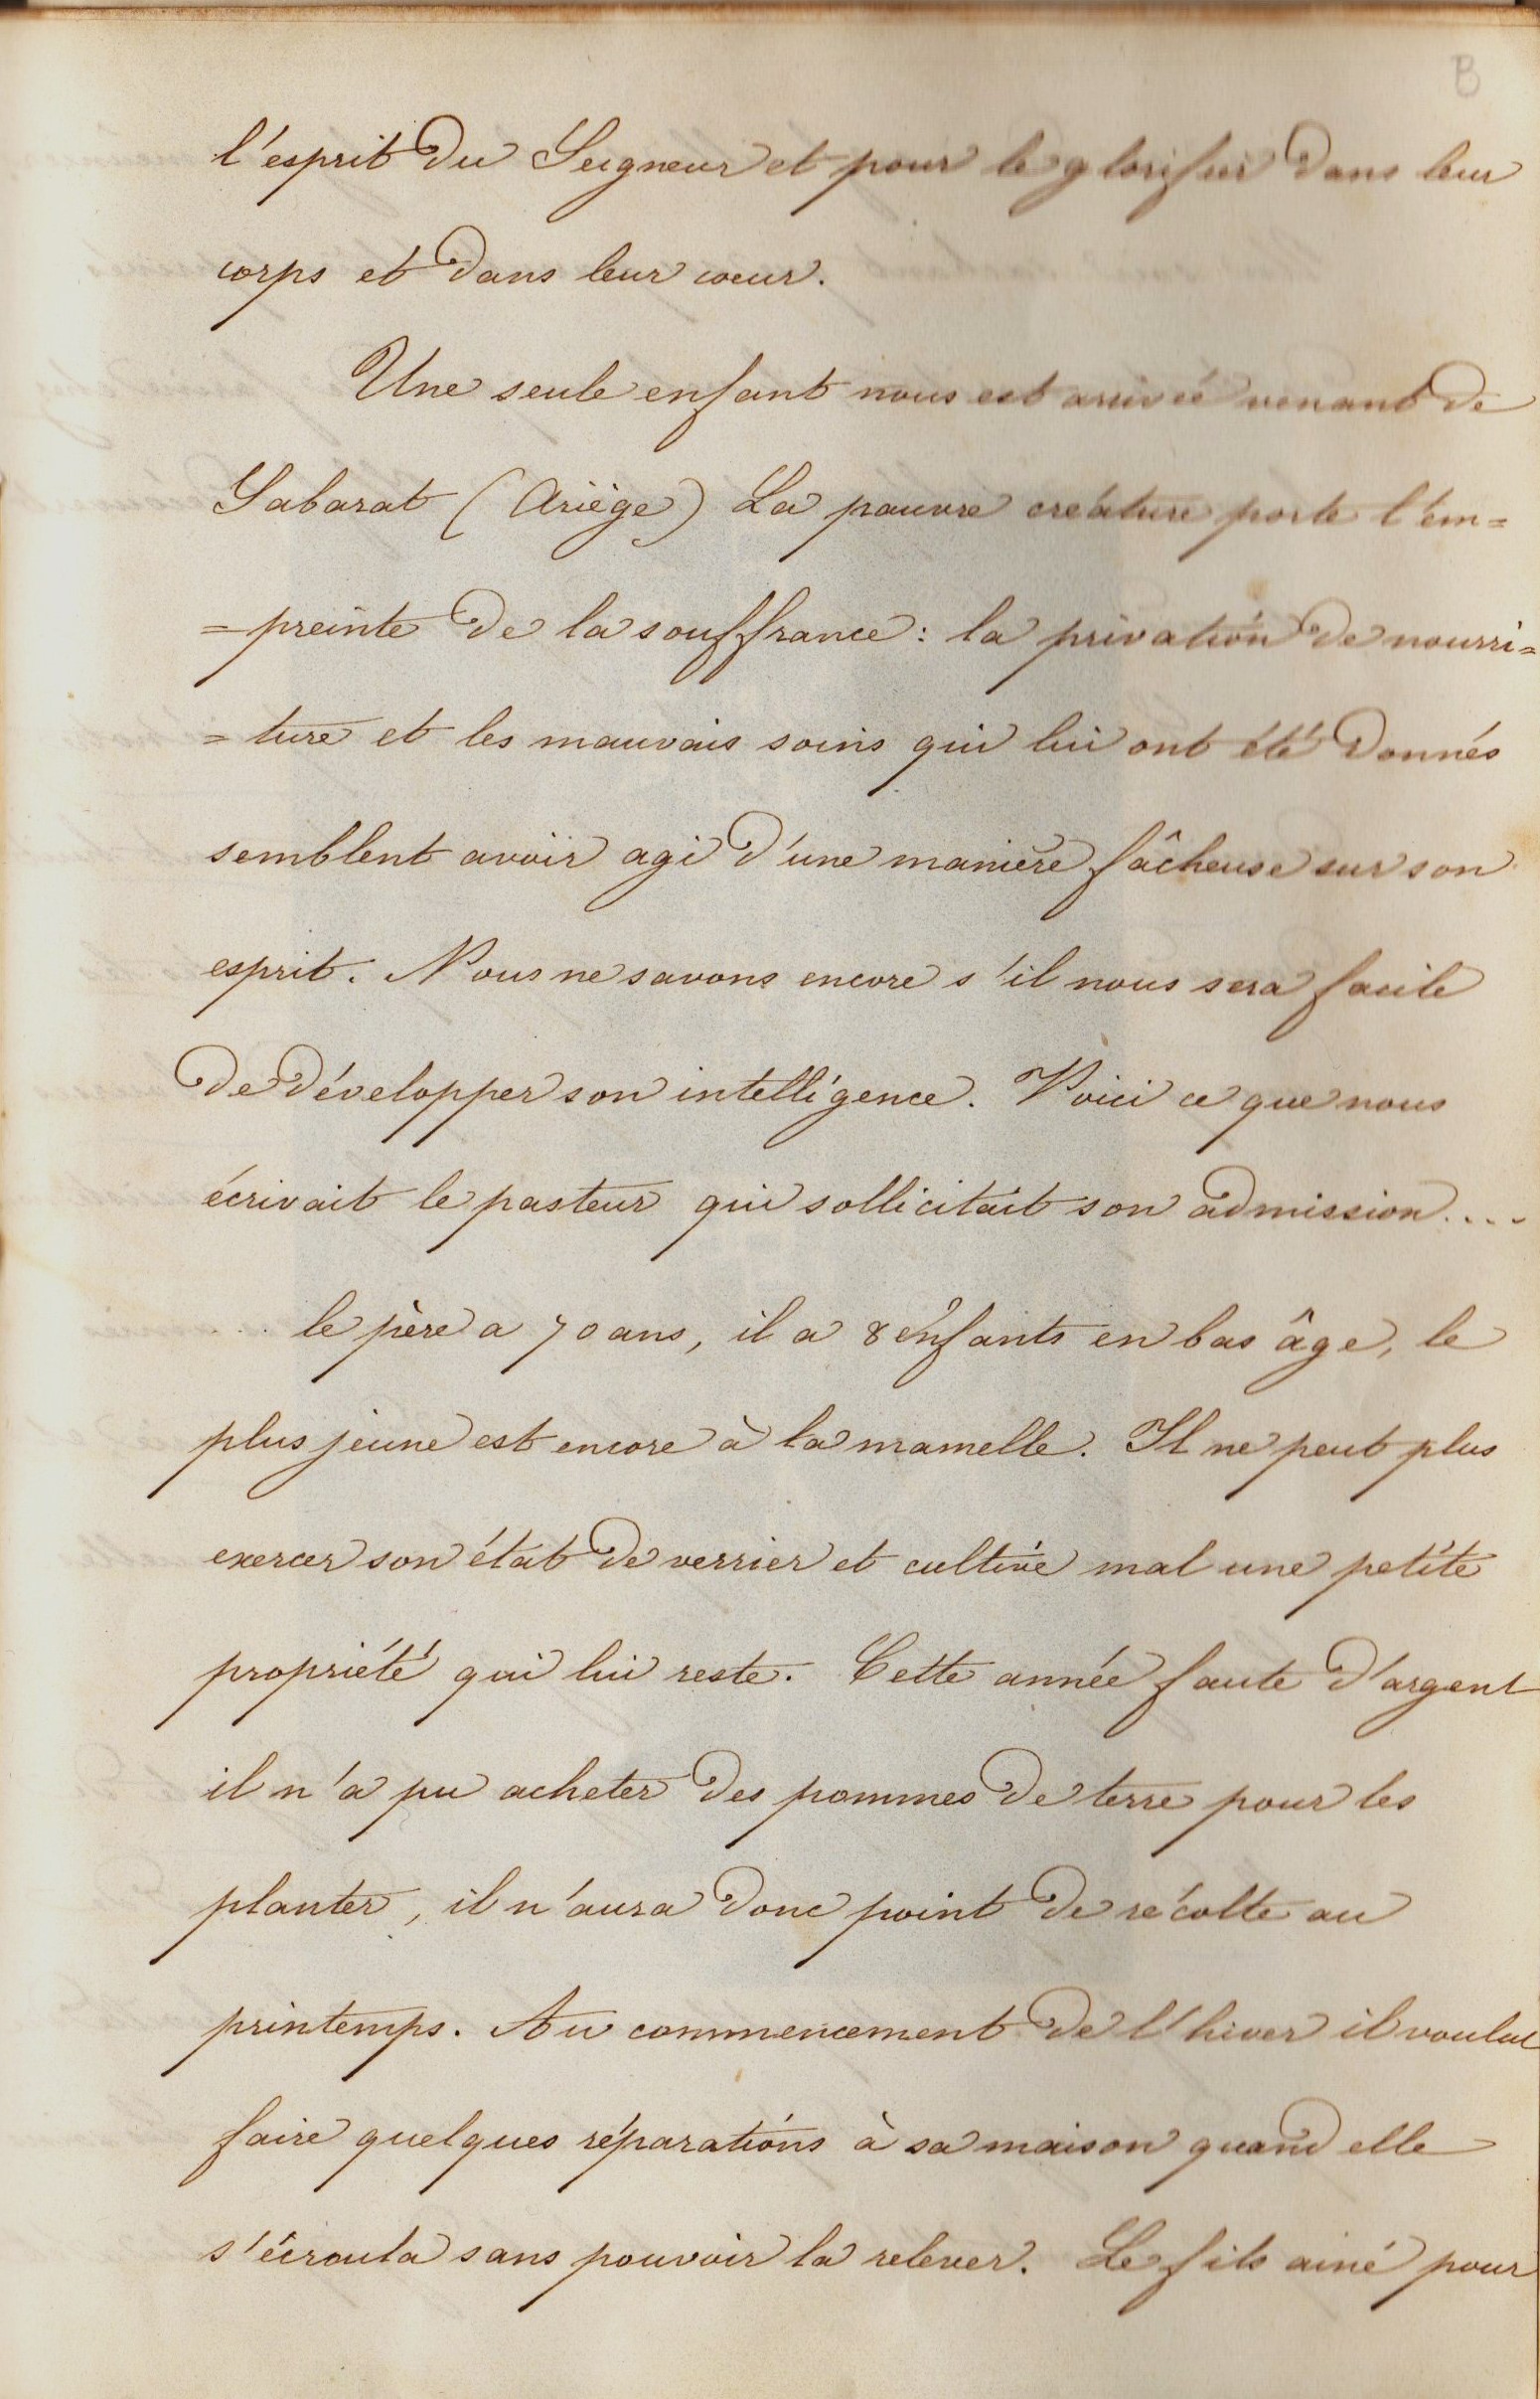 B
l'esprit du Seigneur et pour le glorifier dans leur
corps et dans leur coeur.
Une seule enfant nous est arrivée venant de
Sabarat (Ariège) La pauvre créature porte l'em=
=preinte de la souffrance: la privation de nourri=
=ture et les mauvais soins qui lui ont été donnés
semblent avoir agi d'une manière fâcheuse sur son
esprit. Nous ne savons encore s'il nous sera facile
de développer son intelligence. Voici ce que nous
écrivait le pasteur qui sollicitait son admission....
... le père a 70 ans, il a 8 enfants en bas âge, le
plus jeune est encore à la mamelle. Il ne peut plus
exercer son état de verrier et cultive mal une petite
propriété qui lui reste. Cette année faute d'argent
il n'a pu acheter des pommes de terre pour les
planter, il n'aura donc point de récolte au
printemps. Au commencement de l'hiver il voulut
faire quelques réparations à sa maison quand elle
s'écroula sans pouvoir la relever. Le fils ainé pour